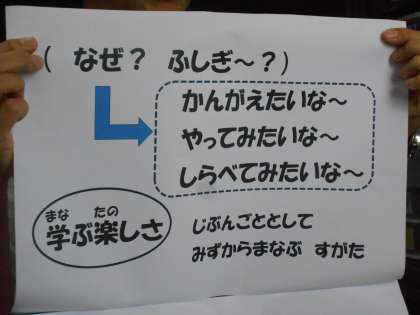 ( なぜ？ ふしぎ～？)
かんがえたいな～
やってみたいな～
しらべてみたいな～
まな たの
学ぶ楽しさ
じぶんごととして
みずからまなぶ すがた